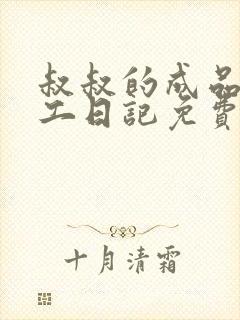 叔叔的成品
工日记免费
十月清霜